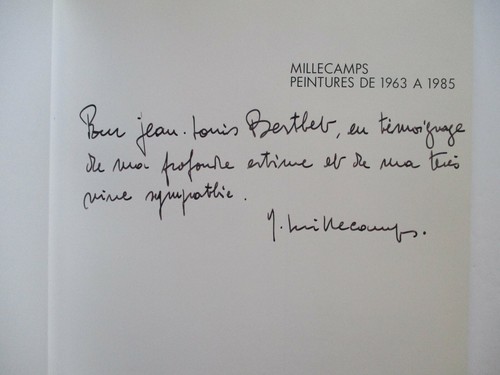 MILLECAMPS
PEINTURES DE 1963 A 1985
Pour jean-Louis Berthet, en témoignage
de ma profonde estime et de ma très
vive sympathie.
Y. Millecamps.